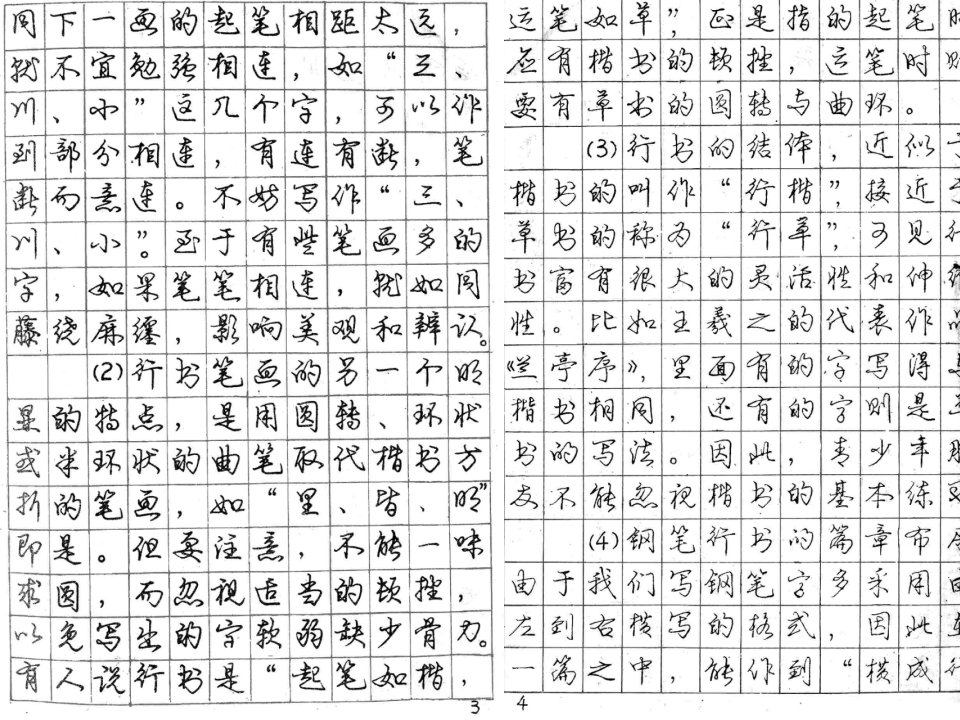 同下一画的起笔相距太远，
就不宜勉强相连，如“三、
川、小”这几个字，可以作
到部分相连，有连有断，笔
断而意连。不妨写作“三、
川、小”。至于有些笔画多的
字，如果笔笔相连，就如同
藤绕麻缠，影响美观和辨认。
(2)行书笔画的另一个明
显的特点，是用圆转、环状
或半环状的曲笔取代楷书方
折的笔画，如“里、皆、明”
即是。但要注意，不能一味
求圆，而忽视适当的顿挫，
以免写出的字软弱缺少骨力。
有人说行书是“起笔如楷，
3
运笔如草”，正是指的起笔时
应有楷书的顿挫，运笔时则
要有草书的圆转与曲环。
(3)行书的结体，近似于
楷书的叫作“行楷”，接近于
草书的称为“行草”，可见行
书富有很大的灵活性和伸缩
性。比如王羲之的代表作品
《兰亭序》，里面有的字写得与
楷书相同，还有的字则是
书的写法。因此，青少年朋
友不能忽视楷书的基本练
(4)钢笔行书的篇章布局
由于我们写钢笔字多采用由
左到右横写的格式，因此
一篇之中，能作到“横成行
4